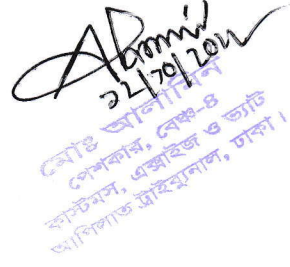 ২২/১০/২০২২
মোঃ আলামিন
পেশকার, বেঞ্চ-৪
কাস্টমস, এক্সাইজ ও ভ্যাট
আপিলাত ট্রাইব্যুনাল, ঢাকা।